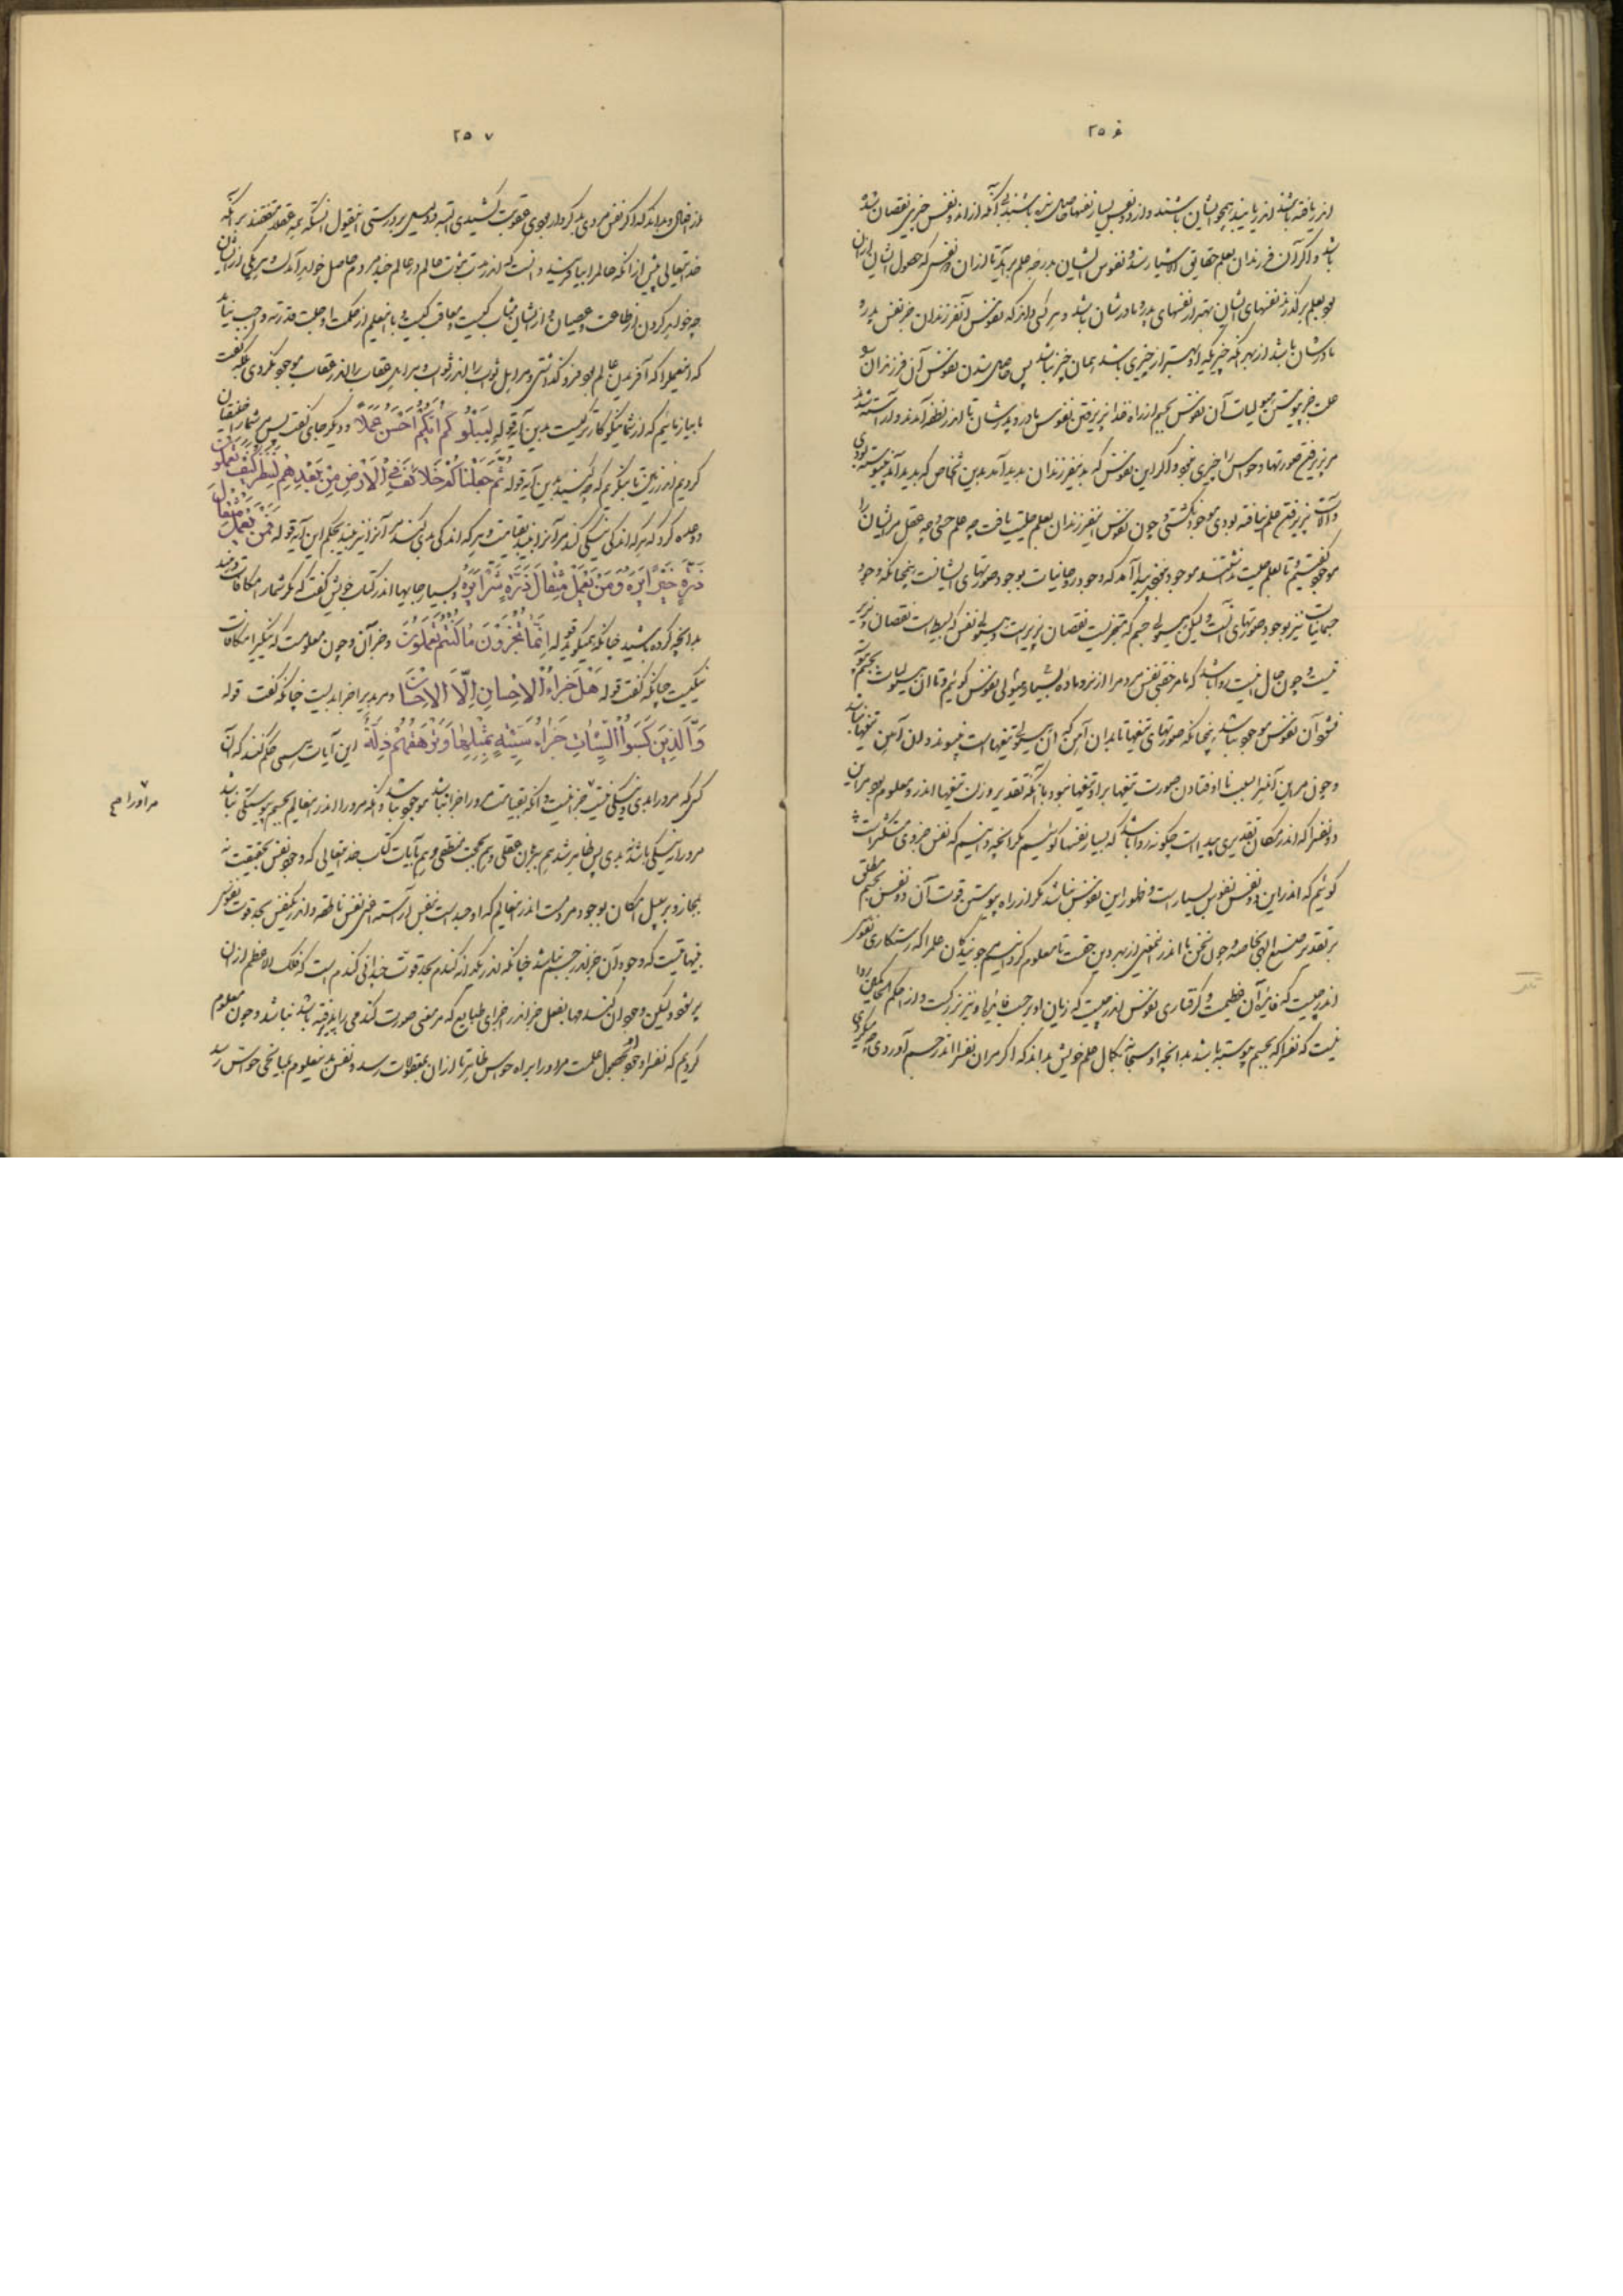 ۲۵۶
اندر یافته باشند اندر یابنده همچو ایشان باشند و از دو نفس بسیار نفسها حاصل شده باشند بی آنکه از آن دو نفس چیزی نقصان شده
باشد و اگر آن فرزندان بعلم حقایق الاشیا رسند و نفوس ایشان بدرجه علم برآید تا از آن دو نفس که حصول ایشان از آن
بود بعلم برگذرند نفسهای ایشان بهتر از نفسهای پدر و مادرشان باشد و هر کسی داند که نفوس آن فرزندان جز نفس پدر و
مادرشان باشد از بهر آنکه چیزیکه او بهتر از چیزی باشد همان چیز نباشد پس حاصل شدن نفوس آن فرزندان را
علت جز پیوستن هیولیات آن نفوس بجسم از راه غذا پذیرفتن نفوس مادر و پدرشان تا اندر نطفه آمدند و آراسته شدند
مر پذیرفتن صورتها و حواس را چیزی نبود و اگر این نفوس که بدین فرزندان پدید آمد بدین اشخاص که پدید آمد پیوسته نبودی
و آلت پذیرفتن علم نیافته بودی موجود نگشتی و چون نفوس این فرزندان بعلم علیت یافت چه علم حسی و چه عقل مر ایشان را
موجود گفتیم و تا بعلم علیت نداشتند موجود نبودند پیدا آمد که وجود روحانیات بوجود صورتهای ایشانست همچنانکه وجود
جسمانیات نیز بوجود صورتهای آنست ولیکن هیولی جسم که متجزیست نقصان پذیر است و هیولی نفس که بسیط است نقصان پذیر
نیست و چون حال اینست روا باشد که ما مر جفتی نفس مردم را از نر و ماده
نشود آن نفوس موجود نباشد همچنانکه صورتهای تیغها تا بدان آهن که آن هیولی تیغهاست نپیوندد از آن آهن تیغها نباشد
و چون مر این آهن را بسبب نا افتادن صورت تیغها بر او تیغها نبود با آنکه تقدیر وزن تیغها اندر او معلوم بود مر این
دو نفس را که اندر مکان تقدیری پیداست چگونه روا باشد که بسیار نفسها گوئیم مگر آنچه دانیم که نفس جزوی متکثر است
گوئیم که اندر این دو نفس نفوس بسیار است و ظهور این نفوس نباشد مگر از راه پیوستن قوت آن دو نفس بجسم مطلق
بر تقدیر صنع الهی خاصه و چون سخن ما اندر نفس از بهر دین حقست تا معلوم کردانیم جویندگان علم را که رستکاری نفوس
اندر چیست که فایده آن عظیمست و گرفتاری نفوس اندر چیست که زیان او بر حسب فایده او نیز بزرگست و از احکم الحاکمین روا
نیست که نفس را که بجسم پیوسته باشد بدانچه او سبحانه بکمال علم خویش بداند که اگر مر آن نفس را اندر جسم آوردی چه کردی
۲۵۷
از افعال و بداند که اگر نفس مردی بد کردار بودی عقوبت کشیدی البته و دلیل بر درستی این قول آنستکه همه عقلا متفقند بر آنکه
خدایتعالی پیش از آنکه عالم را بیافریند دانست که اندر مدت ثبوت عالم در عالم چند مردم حاصل خواهد آمدن و هر یکی از ایشان
چه خواهد کردن از طاعت و عصیان و از ایشان مثاب کیست و معاقب کیست و با اینعلم از حکمت او جلت قدرته واجب نیاید
که اینعلم را که آفریدن عالم بود فرو گذاشتی و مر اهل ثواب را اندر ثواب و مر اهل عقاب را اندر عقاب موجود نکردی بلکه گفت
ما بیازمائیم که از شما نیکو کارتر کیست بدین آیه قوله لِیَبْلُوَکُمْ اَیُّکُمْ اَحْسَنُ عَمَلاً و دیگر جای گفت پس شما را خلیفتان
کردیم اندر زمین تا بنگریم که چه کنید بدین آیه قوله ثُمَّ جَعَلْنَاکُمْ خَلاَئِفَ فِی الْاَرْضِ مِنْ بَعْدِهِمْ لِنَنْظُرَ کَیْفَ تَعْمَلُونَ
و وعده کرد که هر که اندکی نیکی کند مر آنرا ببیند بقیامت و هر که اندکی بدی کند مر آنرا نیز ببیند بحکم این آیه قوله فَمَنْ یَعْمَلْ مِثْقَالَ
ذَرَّةٍ خَیْراً یَرَهُ وَمَنْ یَعْمَلْ مِثْقَالَ ذَرَّةٍ شَرّاً یَرَهُ و بسیار جایها اندر کتاب خویش گفت که مر شما را مکافات دهند
بدانچه کرده باشید چنانکه میگوید قوله اِنَّمَا تُجْزَوْنَ مَا کُنْتُمْ تَعْمَلُونَ و جز آن و چون معلومست که نیکی را مکافات
نیکیست چنانکه گفت قوله هَلْ جَزَاءُ الْاِحْسَانِ اِلَّا الْاِحْسَانُ و مر بدی را جزا بدیست چنانکه گفت قوله
وَالَّذِینَ کَسَبُوا السَّیِّئَاتِ جَزَاءُ سَیِّئَةٍ بِمِثْلِهَا وَتَرْهَقُهُمْ ذِلَّةٌ این آیات همی حکم کنند که آن
کس که مر او را بدی و نیکی نیست جزا نیست و آنکه بقیامت مر او را جزا نباشد موجود نباشد و آنکه مر او را اندر این عالم بجسم پیوستگی نباشد
مر او را نه نیکی باشد و نه بدی پس ظاهر شد هم ببرهان عقلی و هم بحجت منطقی و هم بآیات کتاب خدایتعالی که وجود نفس بحقیقت نه
بمجاز و بر سبیل امکان بوجود مردمست اندر این عالم که او جسد است بنفس آراسته اعنی نفس ناطقه و اندر یک نفس بحد قوت نفوس
بینهایتست که وجود آن جز اندر جسم نباشد چنانکه اندر یکدانه گندم بحد قوت چندانی گندم است که فلک الاعظم از آن
پر شود ولیکن وجود آن گندمها بفعل جز اندر اجزای طبایع که مر معنی صورت گندمی را پذیرفته باشد نباشد و چون معلوم
کردیم که نفس را وجود بحصول علمست مر او را براه حواس ظاهر تا از آن بمعقولات رسد و نفس بدین معلوم بمیانجی حواس رسد
مر او را صح